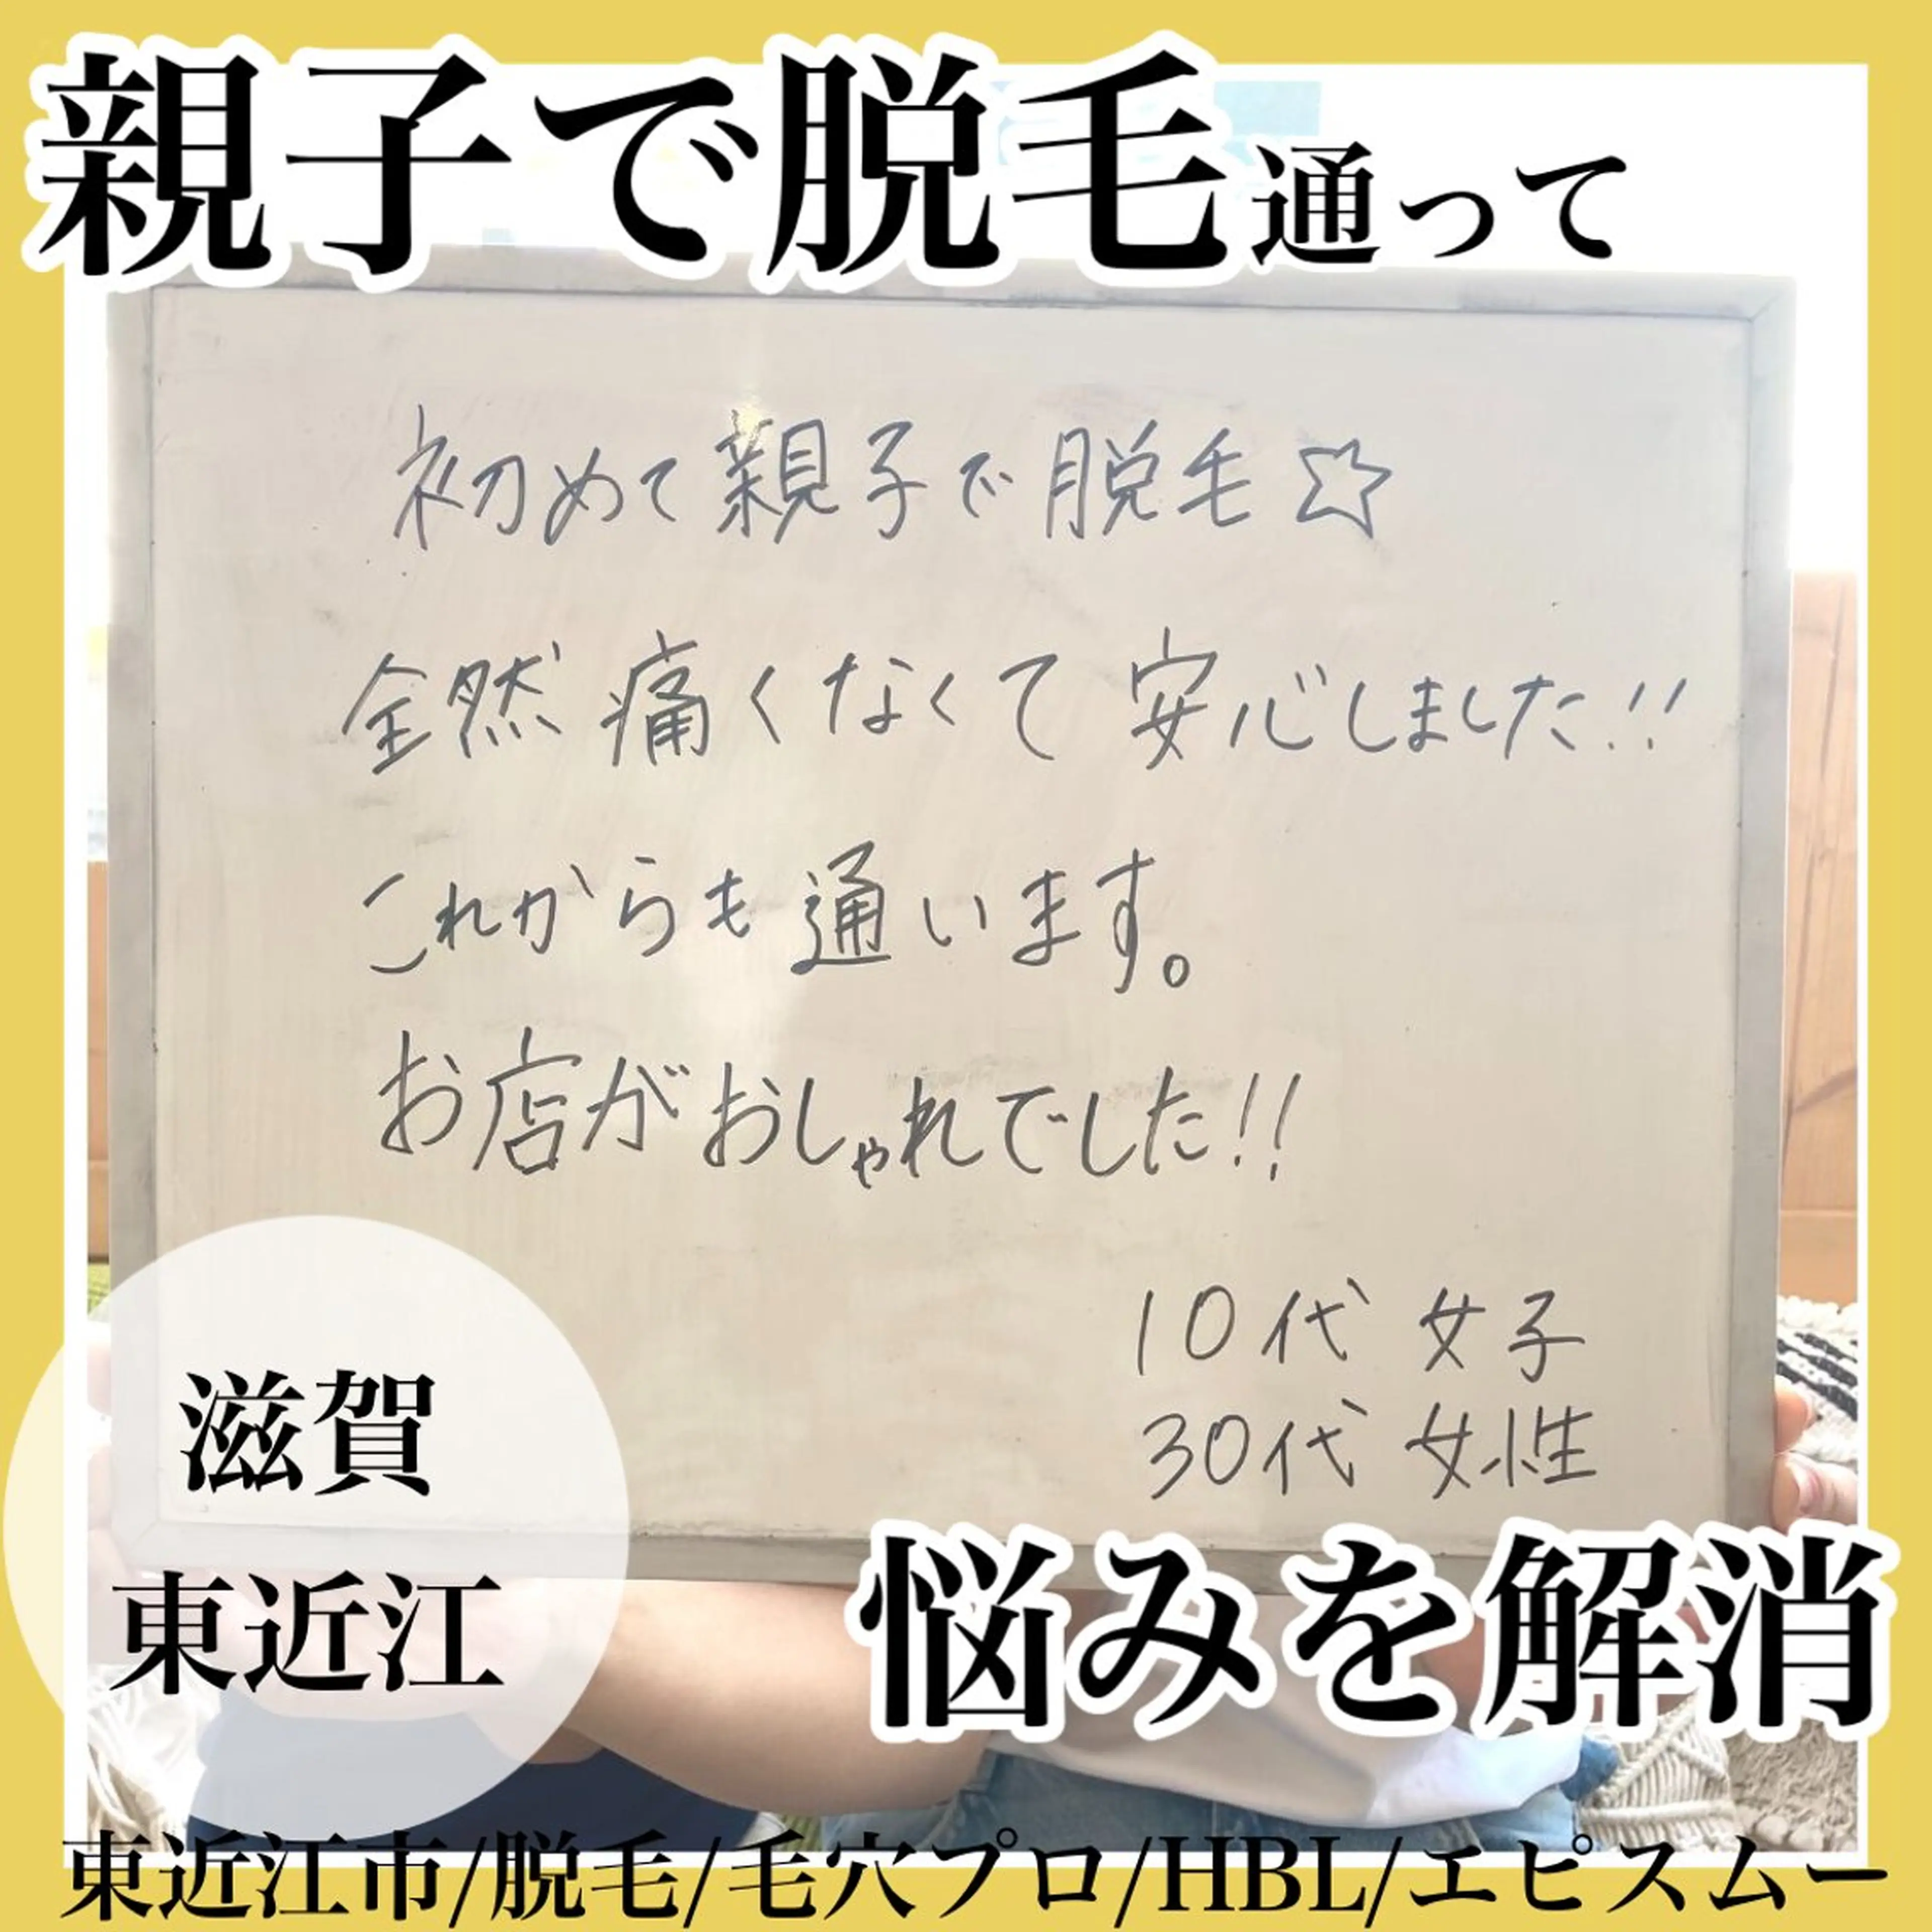 親子で脱毛通って
初めて親子で脱毛☆
全然痛くなくて安心しました!!
これからも通います。
お店がおしゃれでした!!
10代 女子
30代 女性
滋賀
東近江
悩みを解消
東近江市/脱毛/毛穴プロ/HBL/エピスムー